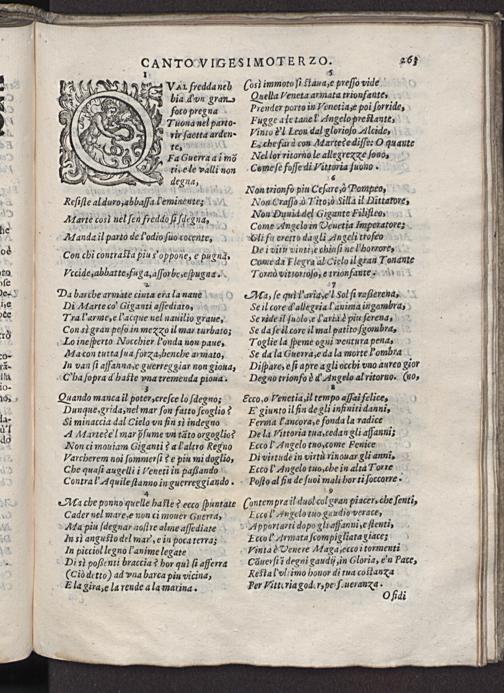 CANTO VIGESIMOTERZO. 263
1
QVAL fredda neb
bia d'vn gran
foco pregna
Tuona nel parto-
rir saetta arden-
te,
Fa Guerra a i mō
ti, e le valli non
degna,
Resiste al duro, abbassa l'eminente;
Marte così nel sen freddo si sdegna,
Manda il parto de l'odio suo cocente,
Con chi contrasta più s'oppone, e pugna,
Vccide, abbatte, fuga, assorbe, espugna.
2
Da barche armate cinta era la naue
Di Marte co' Giganti assediato,
Tra l'arme, e l'acque nel nauilio graue,
Con sì gran peso in mezzo il mar turbato;
Lo inesperto Nocchier l'onda non paue,
Ma con tutta sua forza, benche armato,
In van si affanna, e guerreggiar non gioua,
C'ha sopra d'haste vna tremenda pioua.
3
Quando manca il poter, cresce lo sdegno;
Dunque, grida, nel mar son fatto scoglio?
Si minaccia dal Ciel vn sì indegno
A Marte? e'l mar āssume vn tāto orgoglio?
Non ci mouiam Giganti? e a l'altro Regno
Varcherem noi sommersi? e più mi doglio,
Che quasi augelli i Veneti in passando
Contra l'Aquile stanno in guerreggiando.
4
Ma che ponno quelle haste? ecco spuntate
Cader nel mar, e non ci mouer Guerra,
Ma più sdegnar nostre alme assediate
In sì angusto del mar, e in poca terra;
In picciol legno l'anime legate
Di sì possenti braccia? hor quì si afferra
(Ciò detto) ad vna barca più vicina,
E la gira, e la rende a la marina.
5
Così immoto si staua, e presso vide
Quella Veneta armata trionfante,
Prender porto in Venetia, e poi sorride,
Fugge a le tane l'Angelo prestante,
Vinto è'l Leon dal glorioso Alcide,
E, che farà con Marte? e disse: O quante
Nel lor ritorno le allegrezze sono,
Come se fosse di Vittoria suono.
6
Non trionfo più Cesare, ò Pompeo,
Non Crasso, ò Tito, ò Silla il Dittatore,
Non Dauid del Gigante Filisteo,
Come Angelo in Venetia Imperatore;
Gli fu eretto da gli Angeli trofeo
De i vitij vinti, e chiusi ne l'horrore,
Come da Flegra al Cielo il gran Tonante
Tornò vittorioso, e trionfante.
7
Ma, se quì l'aria, e'l Sol si rasserena,
Se il cor d'allegria l'anima ingombra,
Se ride il suolo, e l'aria è più serena,
Se da se il core il mal patito sgombra,
Toglie la speme ogni ventura pena,
Se da la Guerra, e da la morte l'ombra
Dispare, e si apre a gli occhi vno aureo gior
Degno trionfo è d'Angelo al ritorno. (no,
8
Ecco, o Venetia, il tempo assai felice,
E' giunto il fin de gli infiniti danni,
Ferma l'ancora, e fonda la radice
De la Vittoria tua, sedan gli affanni;
Ecco l'Angelo tuo, come Fenice
Di virtude in virtù rinouar gli anni,
Ecco l'Angelo tuo, che in alta Torre
Posto al fin de' suoi mali hor ti soccorre.
9
Contempra il duol col gran piacer, che senti,
Ecco l'Angelo tuo gaudio verace,
Apportarti dopo gli affanni, e stenti,
Ecco l'Armata scompigliata giace;
Vinta è Venere Maga, ecco i tormenti
Cāuersi ī degni gaudij, in Gloria, e'n Pace,
Resta l'vltimo honor di tua costanza
Per Vittoria
O sidi